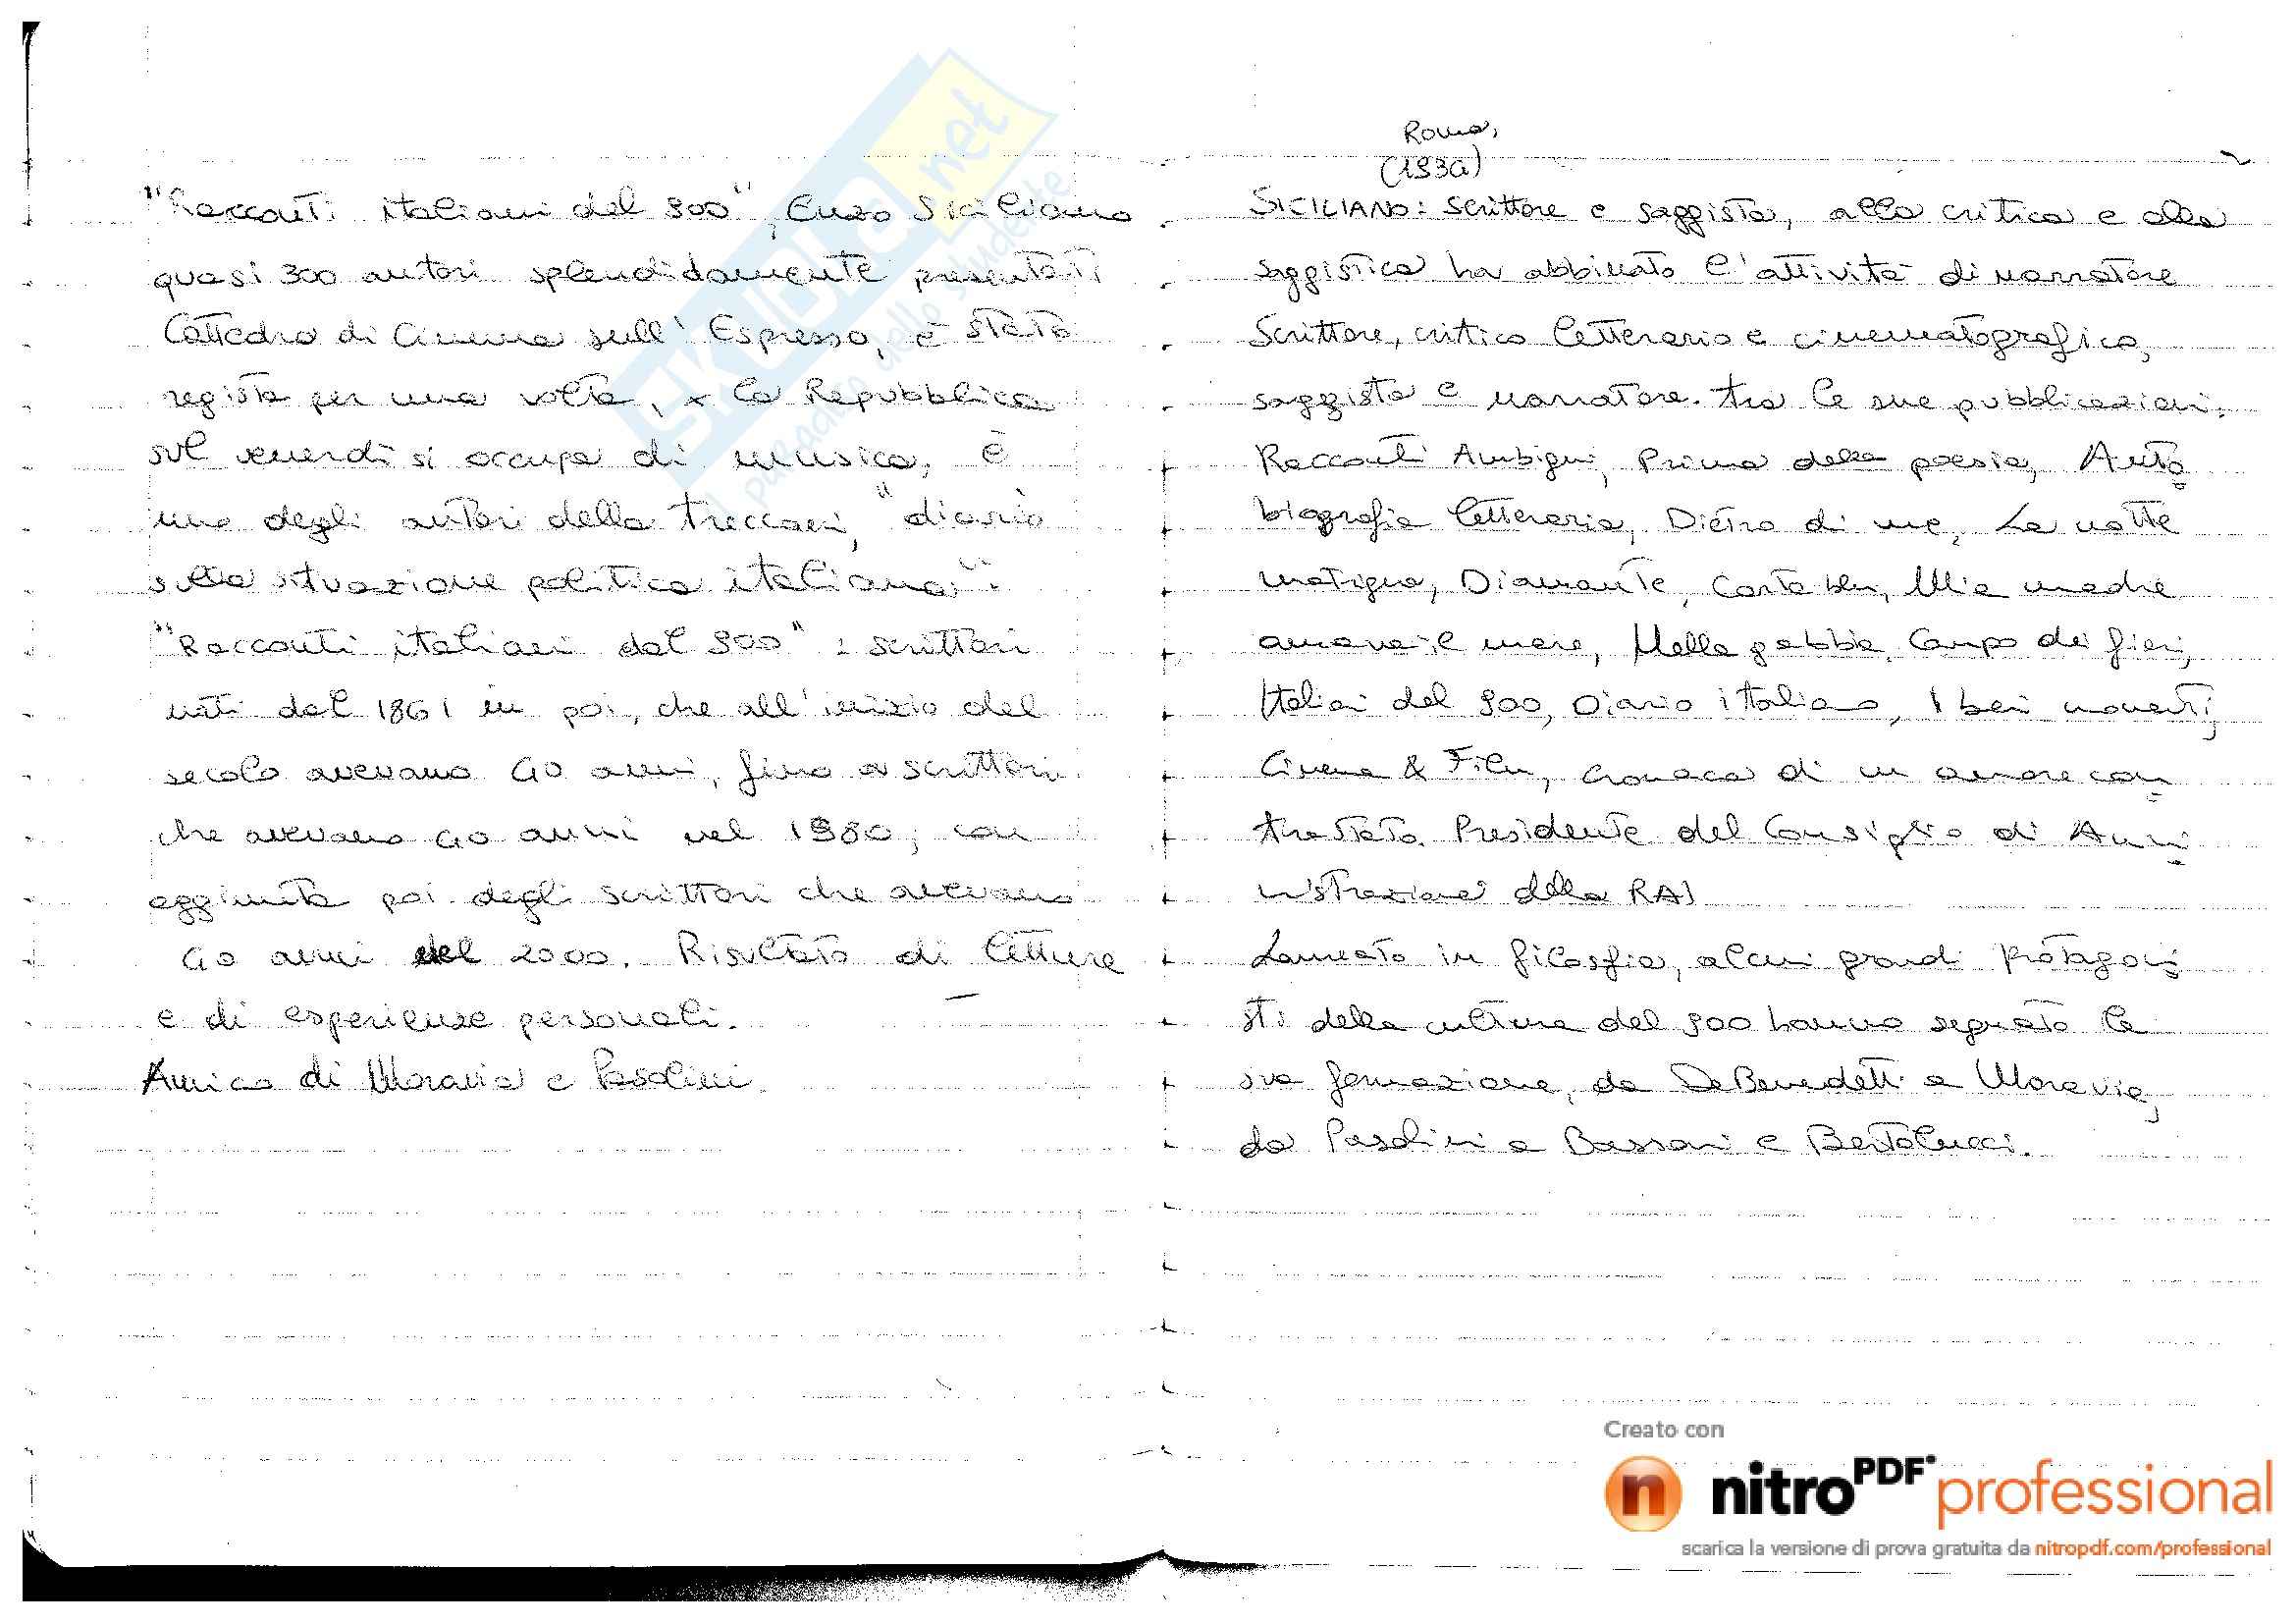 "Racconti italiani del 900", Enzo Siciliano
quasi 300 autori splendidamente presentati
Cattedra di Cinema sull'Espresso, è stato
regista per una volta, x la Repubblica
sul venerdì si occupa di musica, è
uno degli autori della Treccani, "diario
sulla situazione politica italiana".
"Racconti italiani del 900" : scrittori
nati dal 1861 in poi, che all'inizio del
secolo avevano 40 anni, fino a scrittori
che avevano 40 anni nel 1980, con
aggiunta poi degli scrittori che avevano
40 anni nel 2000. Risultato di letture
e di esperienze personali.
Amico di Moravia e Pasolini.
Roma,
(1934)
2
SICILIANO: scrittore e saggista, alla critica e alla
saggistica ha abbinato l'attività di narratore
Scrittore, critico letterario e cinematografico,
saggista e narratore. tra le sue pubblicazioni:
Racconti Ambigui, Prima della poesia, Auto
biografia letteraria, Dietro di me, La notte
matigna, Diamante, Carta blu, Mia madre
amava il mare, Nella gabbia, Campo dei fiori,
Italiani del 900, Diario italiano, I bei momenti,
Cinema & Film, cronaca di un amore con
trastato. Presidente del Consiglio di Ammi
nistrazione della RAI
Laureato in filosofia, alcuni grandi protagoni
sti della cultura del 900 hanno segnato la
sua formazione, da DeBenedetti a Moravia,
da Pasolini a Bassani e Bertolucci.
SKUOLA.net
il paradiso dello studente
Creato con
nitroPDF professional
scarica la versione di prova gratuita da nitropdf.com/professional